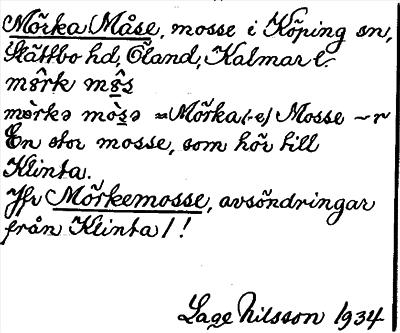 Mörka Måse, mosse i Köping sn,
Slättbo hd, Öland, Kalmar l.
mörk mös
mörkə mòsə = Mörka (-e) Mosse ~r
En stor mosse, som hör till
Klinta.
Jfr Mörkemosse, avsöndringar
från Klinta 1!
Lage Nilsson 1934